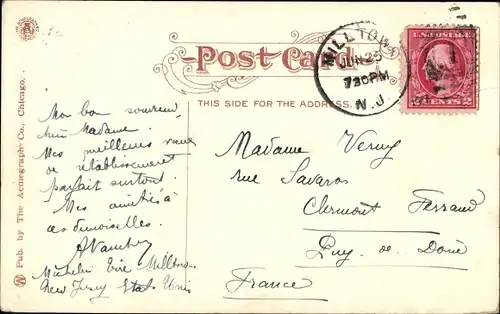 Post Card
THIS SIDE FOR THE ADDRESS.
MILLTOWN
JUN 23
730PM
N.J.
U.S. POSTAGE
2 CENTS 2
Pub. by The Acmegraph Co., Chicago.
Mon bon souvenir,
chère Madame.
Mes meilleurs vœux
de rétablissement
parfait surtout.
Mes amitiés à
ces demoiselles.
Michelin Tire - Milltown
New Jersey Etats Unis
Madame Verny
rue Savaron
Clermont Ferrand
Puy-de-Dôme
France